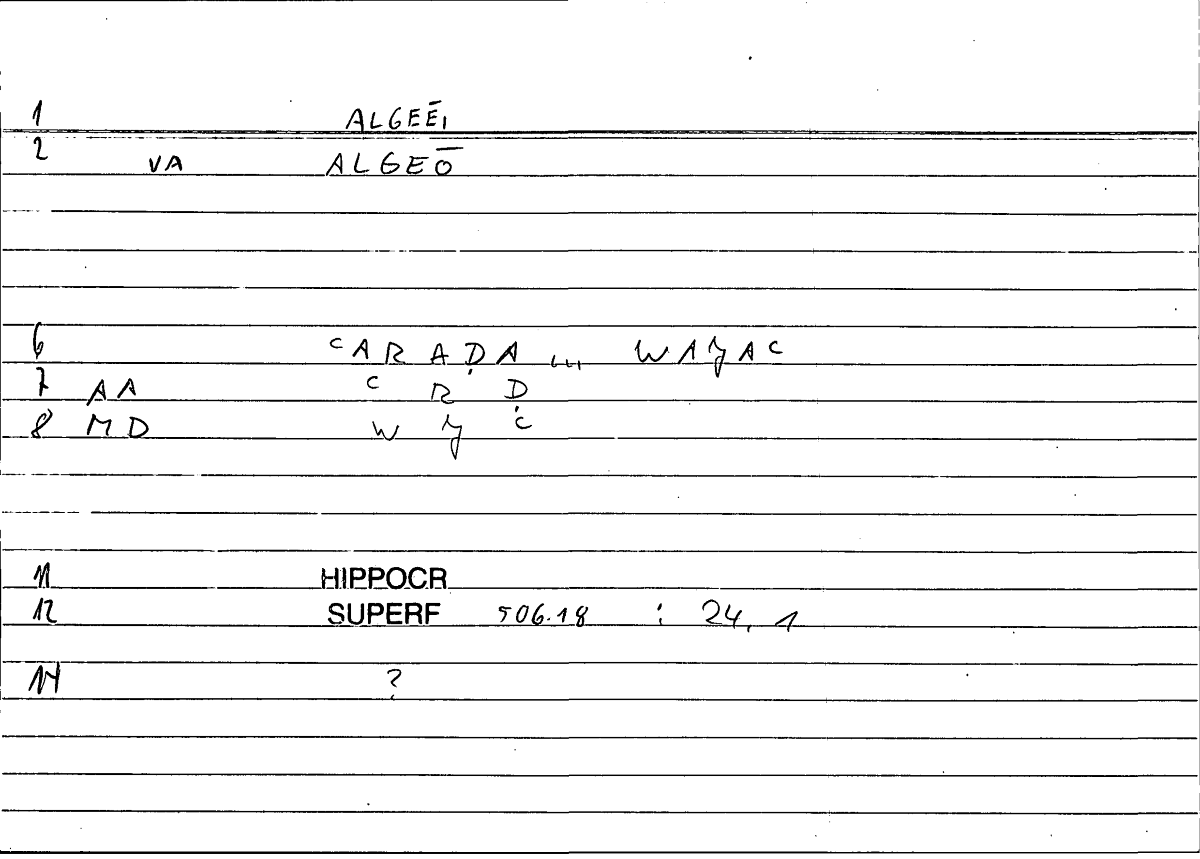 1 ALGEĒ,
2 VA ALGEŌ
6 ᶜARAḌA ... WAJAᶜ
7 AA ᶜ R Ḍ
8 MD W J ᶜ
11 HIPPOCR
12 SUPERF 506.18 : 24, 1
14 ?